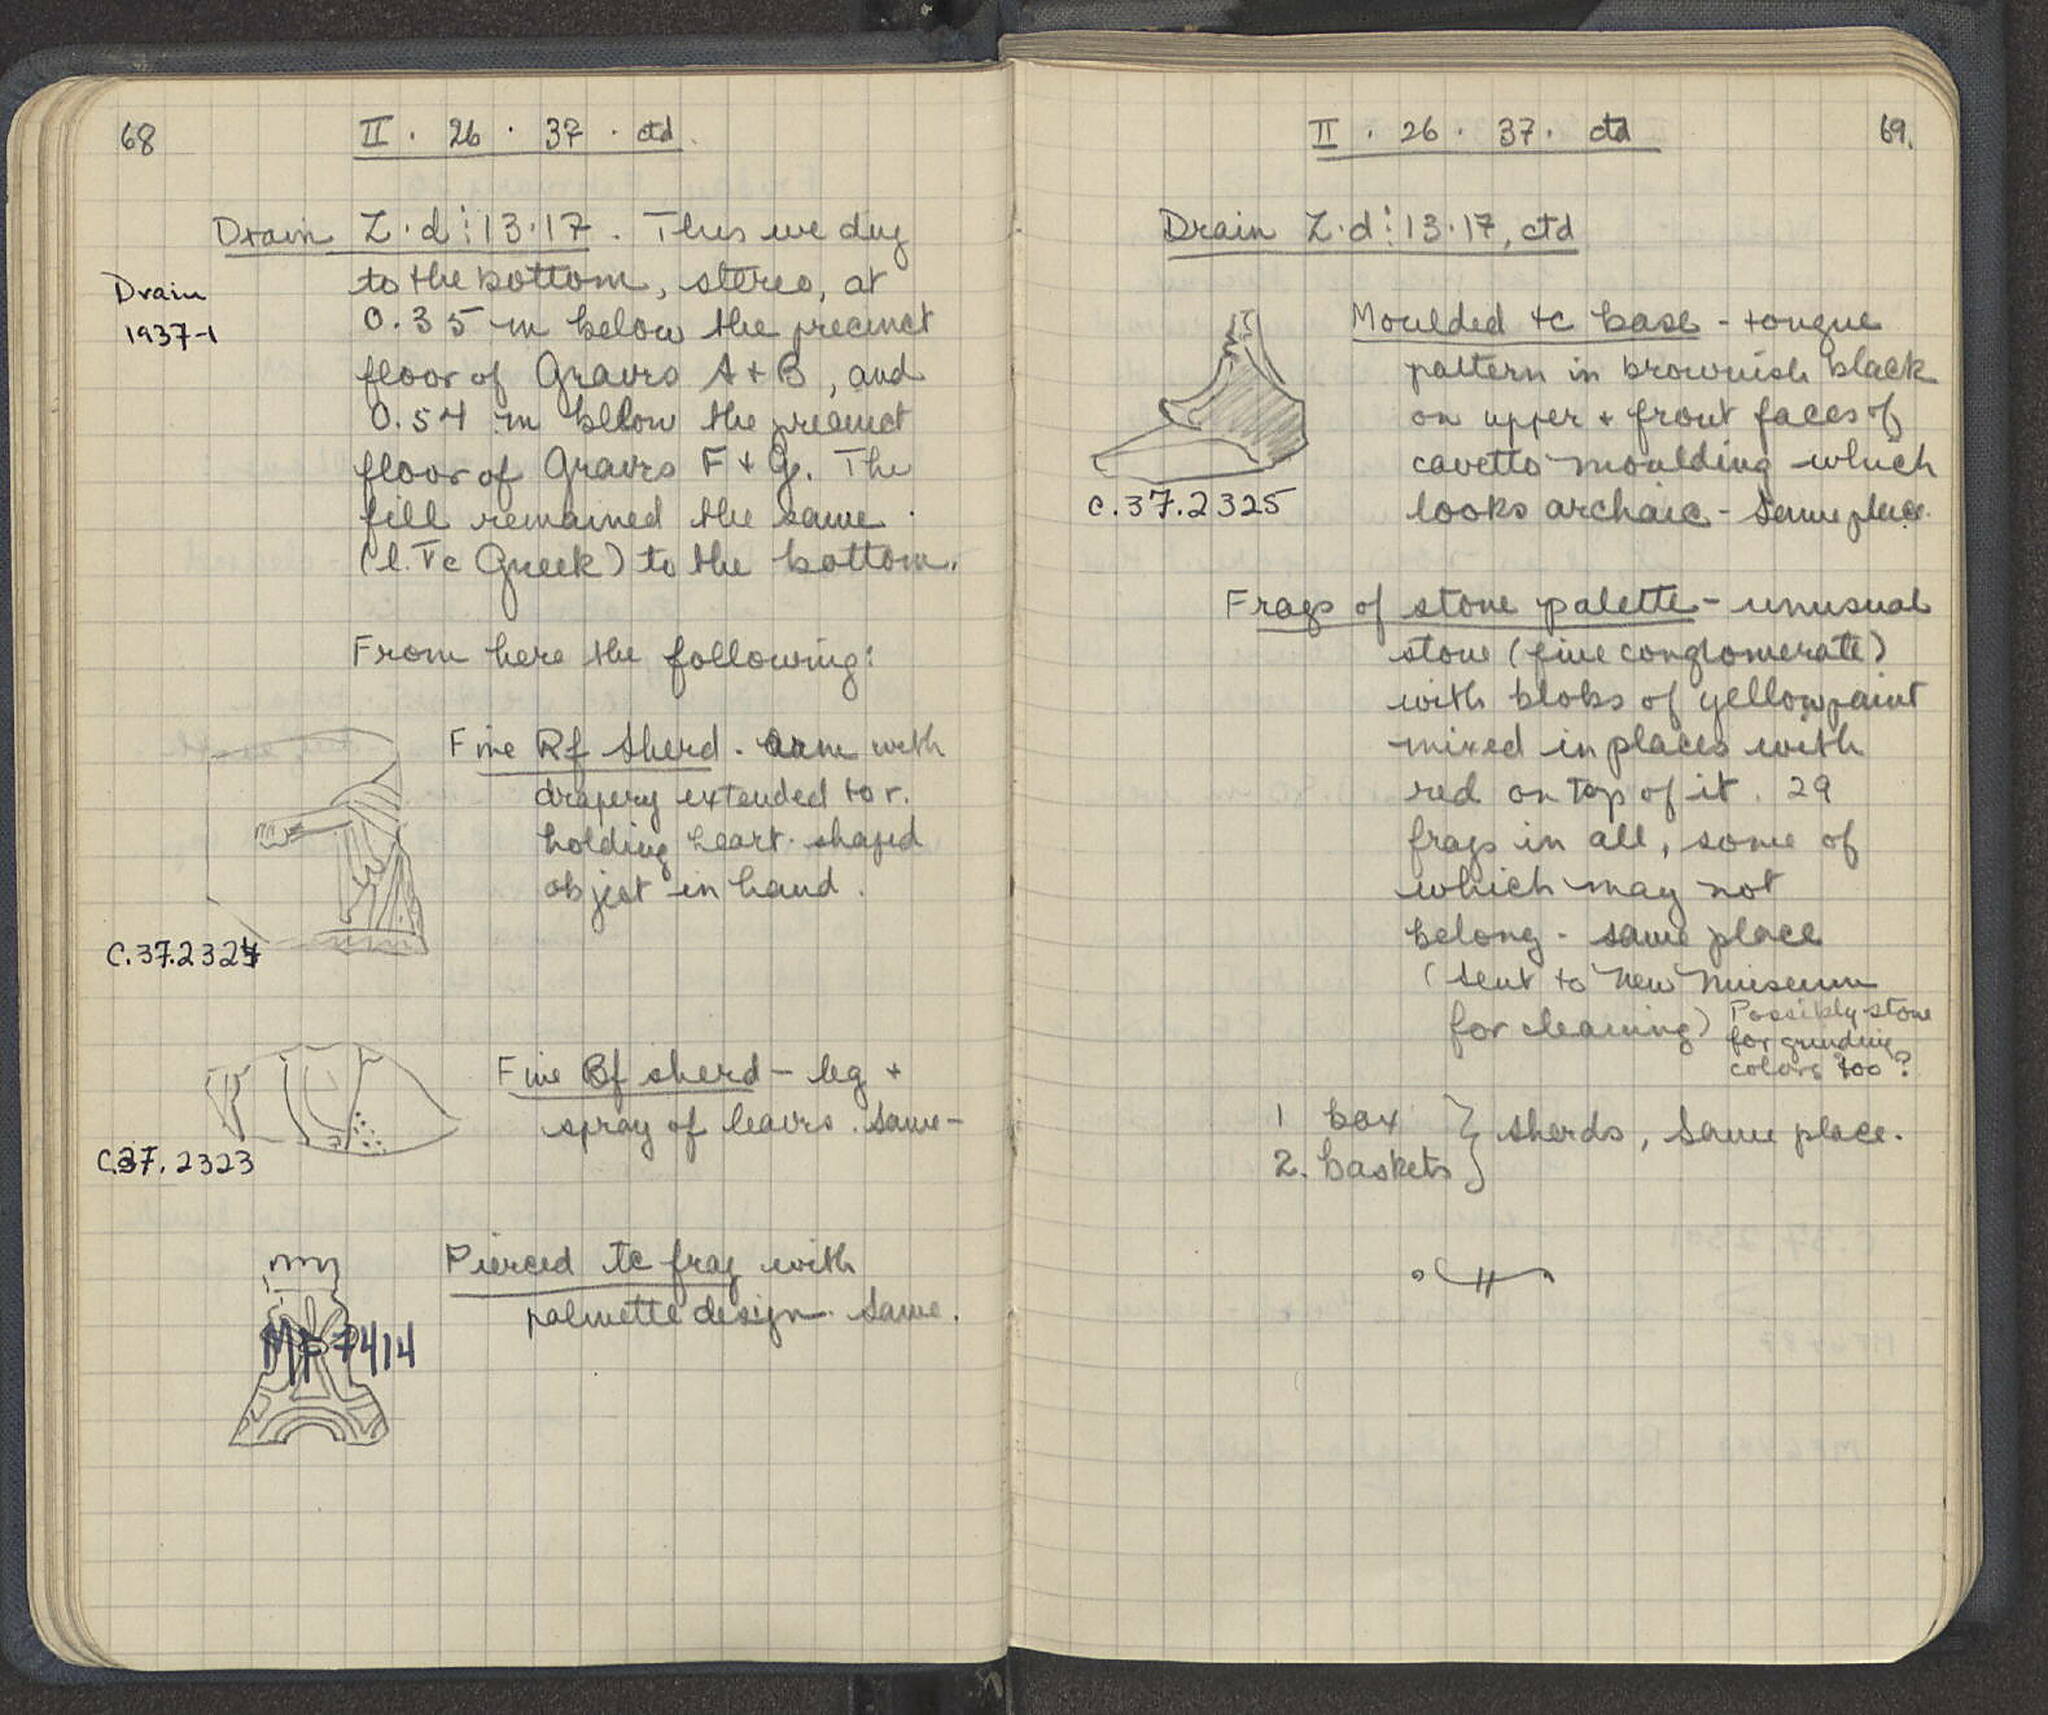 68
II · 26 · 37 · ctd.
Drain Z·d⋮13·17. This we dug
Drain
1937-1
to the bottom, stereo, at
0.35 m below the precinct
floor of Graves A + B, and
0.54 m below the precinct
floor of Graves F + G. The
fill remained the same
(l. Vc Greek) to the bottom.
From here the following:
Fine Rf sherd. Arm with
drapery extended to r.
holding heart-shaped
object in hand.
C.37.2324
Fine Bf sherd - leg +
spray of leaves. Same -
C.37.2323
Pierced tc frag with
palmette design. Same.
MF 7414
II · 26 · 37 · ctd
69.
Drain Z·d⋮13·17, ctd
Moulded tc base - tongue
pattern in brownish black
on upper + front faces of
cavetto moulding which
looks archaic - Same place.
C.37.2325
Frags of stone palette - unusual
stone (fine conglomerate)
with blobs of yellow paint
mixed in places with
red on top of it. 29
frags in all, some of
which may not
belong - same place
(sent to New Museum
for cleaning) Possibly stone
for grinding
colors too?
1 box } sherds, Same place.
2. baskets